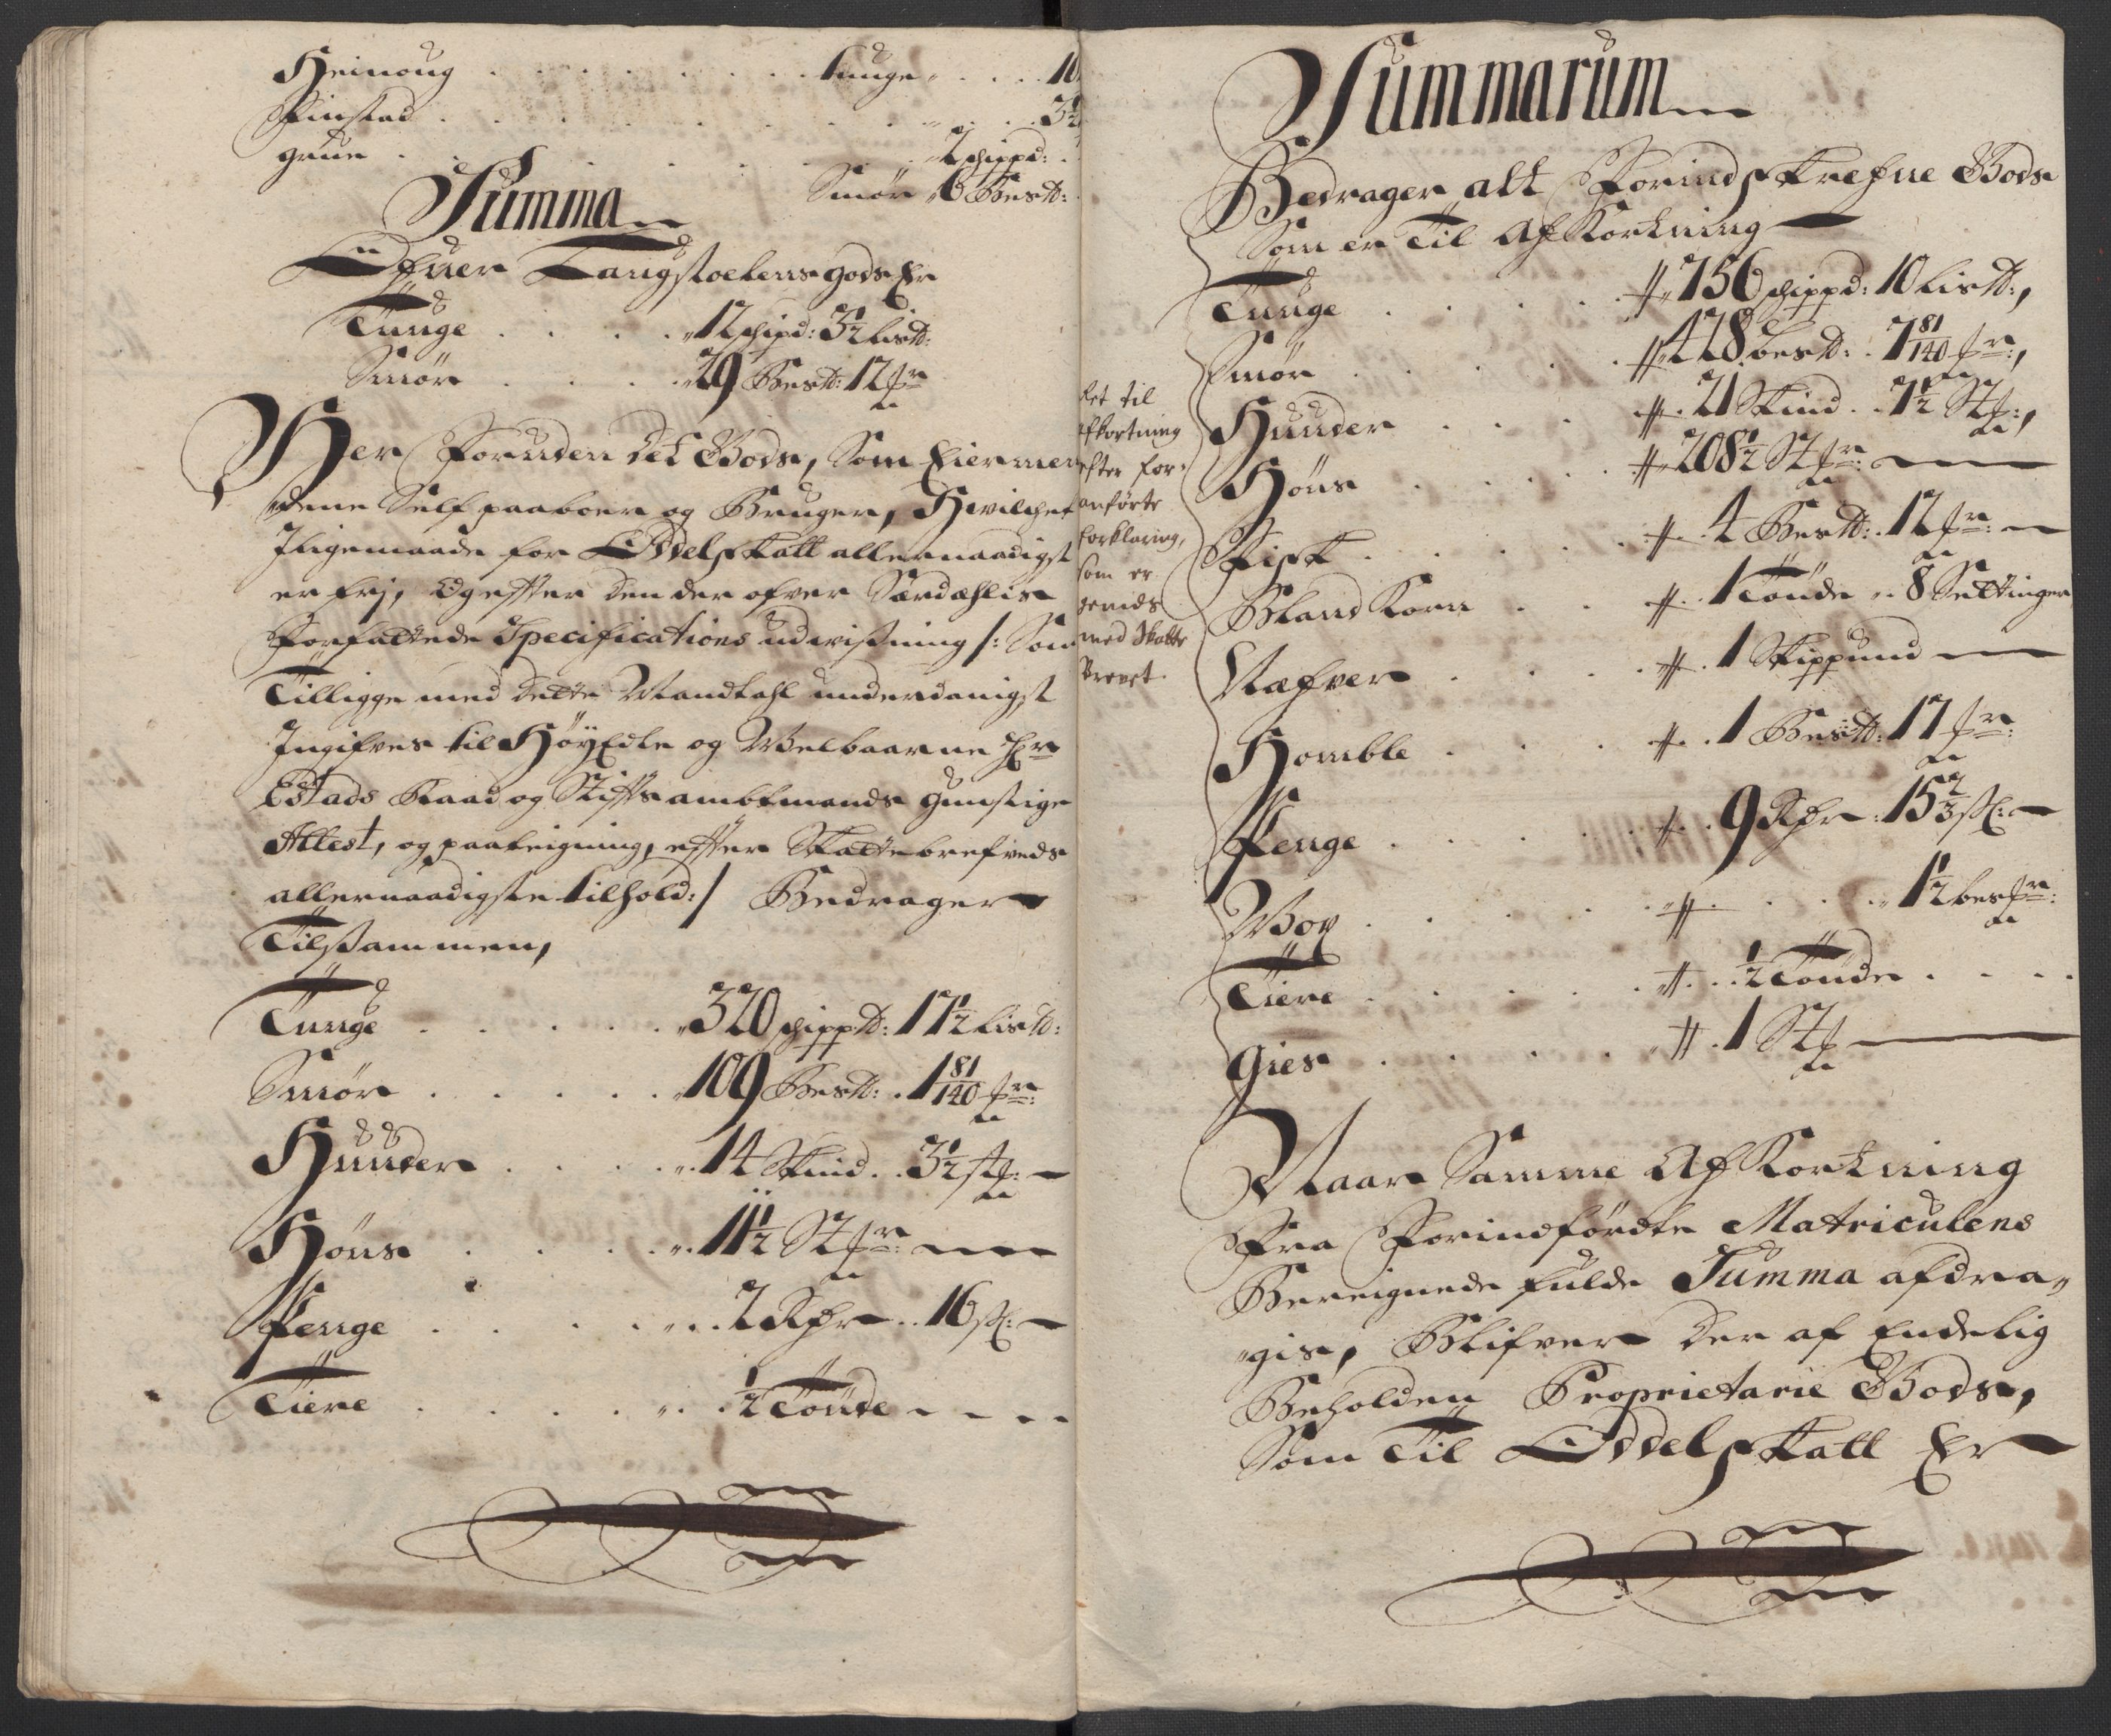 Heinoug . . . . . . . . . tunge . . . 10
Finstad . . . . . . . . . . . 3½
grue . . . . . . . . . 2 schippd: .
Smör 6 Bes℔:
Summa
Öfuer Langstoelens gods Er
Tunge . . . . 12 schipd: 3½ Lis℔:
Smör . . . . 29 Bes℔: 12 mr
Her Foruden det Gods, Som Eiermen
dene Self paaboer og Bruger, Hvilchet
Jligemaade for Oddelskatt allernaadigst
er frj, Og effter den der ofver Særdæhlis
Forfattede Specifications udvissning /: Som
Tilligge med dette Mandtahl underdanigst
Ingifves til HöyEdle og Welbaarne Hr
Estads Raad og Stiffts ambtmands gunstige
Attest, og paateigning, effter Skattebrefveds
allernaadigste tilhold :/ Bedrager
Tilsammen,
Tunge . . . . . 320 schipp℔: 17½ Lis℔:
Smör . . . . . 109 Bes℔: . 1 81/140 mr:
Huuder . . . . 14 Skind . . 3½ st:
Höns . . . . . 11½ Str:
Penge . . . . . 2 Rdr . . 16 sk:
Tiere . . . . . ½ Tönde
det til
afkortning
efter for-
anförte
forklaring,
som er
gemds
med Skatte
Brevet.
Summarum
Bedrager alt Forindskrefne Gods
Som er Til AfKortning
Tunge . . . . 756 schippd: 10 Lis℔:,
Smör . . . . . 428 bes℔: . 7 81/140 mr:,
Huuder . . . . 21 Skind . . 7½ St:,
Höns . . . . . 208½ Str:
Fisk . . . . . 4 Bes℔: . 12 mr:
Bland Korn . . . 1 Tönde . . 8 Settinger
Næfver . . . . 1 Skippund
Homble . . . . 1 Bes℔: 17 mr:
Penge . . . . . 9 Rdr . 15⅔ sk:
Wox . . . . . . . . 1½ besmr:
Tiere . . . . . ½ Tönde . . . .
Gies . . . . . 1 St
Naar Samme AfKortning
Fra Forindfördte Matriculens
Bereignede fulde Summa afdra-
gis, Blifver der af Endelig
Beholden Proprietarie Gods,
Som Til Oddelskatt Er